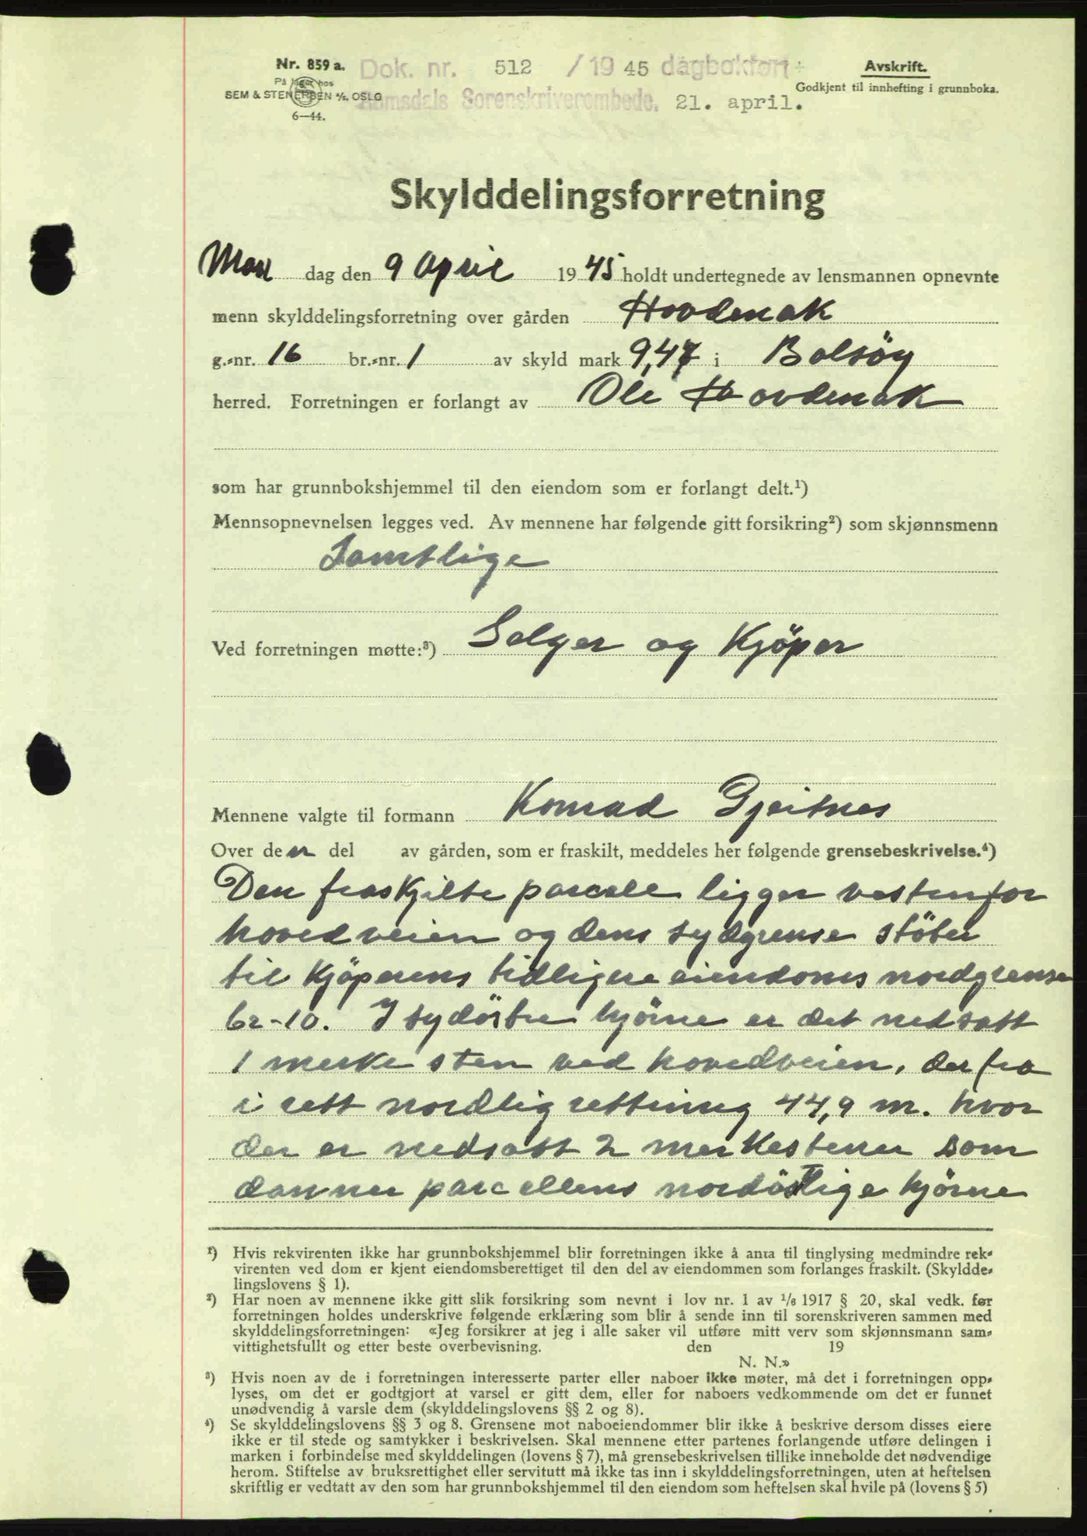 Nr. 859 a. Dok. nr. 512 / 19 45 dagbokført Avskrift.
På lager hos Godkjent til innhefting i grunnboka.
SEM & STENERSEN A/S, OSLO Romsdals Sorenskriverembede, 21. april.
6—44.
Skylddelingsforretning
Man dag den 9 April 19 45 holdt undertegnede av lensmannen opnevnte
menn skylddelingsforretning over gården Hovdenak
g.-nr. 16 br.-nr. 1 av skyld mark 9,47 i Bolsöy
herred. Forretningen er forlangt av Ole Hovdenak
som har grunnbokshjemmel til den eiendom som er forlangt delt.¹)
Mennsopnevnelsen legges ved. Av mennene har følgende gitt forsikring²) som skjønnsmenn
Samtlige
Ved forretningen møtte:³) Selger og Kjöper
Mennene valgte til formann Konrad Gjeitnes
Over den del av gården, som er fraskilt, meddeles her følgende grensebeskrivelse.⁴)
Den fraskjilte parcele ligger vestenfor
hovedveien og dens sydgrense stöter
til Kjöperens tidligere eiendoms nordgrense
br-10. I sydöstre hjörne er det nedsatt
1 merkesten ved hovedveien, derfra
i rett nordlig rettning 44,9 m. hvor
der er nedsatt 2 merkestener som
danner parcellens nordöstlige hjörne
¹) Hvis rekvirenten ikke har grunnbokshjemmel blir forretningen ikke å anta til tinglysing medmindre rek-
virenten ved dom er kjent eiendomsberettiget til den del av eiendommen som forlanges fraskilt. (Skyldde-
lingslovens § 1).
²) Har noen av mennene ikke gitt slik forsikring som nevnt i lov nr. 1 av ¹/₆ 1917 § 20, skal vedk. før
forretningen holdes underskrive følgende erklæring som blir å sende inn til sorenskriveren sammen med
skylddelingsforretningen: «Jeg forsikrer at jeg i alle saker vil utføre mitt verv som skjønnsmann sam-
vittighetsfullt og etter beste overbevisning. den 19
N. N.»
³) Hvis noen av de i forretningen interesserte parter eller naboer ikke møter, må det i forretningen opp-
lyses, om det er godtgjort at varsel er gitt dem, eller for naboers vedkommende om det er funnet
unødvendig å varsle dem (skylddelingslovens §§ 2 og 8).
⁴) Se skylddelingslovens §§ 3 og 8. Grensene mot naboeiendommer blir ikke å beskrive dersom disses eiere
ikke er til stede og samtykker i beskrivelsen. Skal mennene etter partenes forlangende utføre delingen i
marken i forbindelse med skylddelingen (lovens § 7), må grensebeskrivelsen tillike inneholde det nødvendige
herom. Stiftelse av bruksrettighet eller servitutt må ikke tas inn i skylddelingsforretningen, uten at heftelsen
skriftlig er vedtatt av den som har grunnbokshjemmel til den eiendom som heftelsen skal hvile på (lovens § 5)